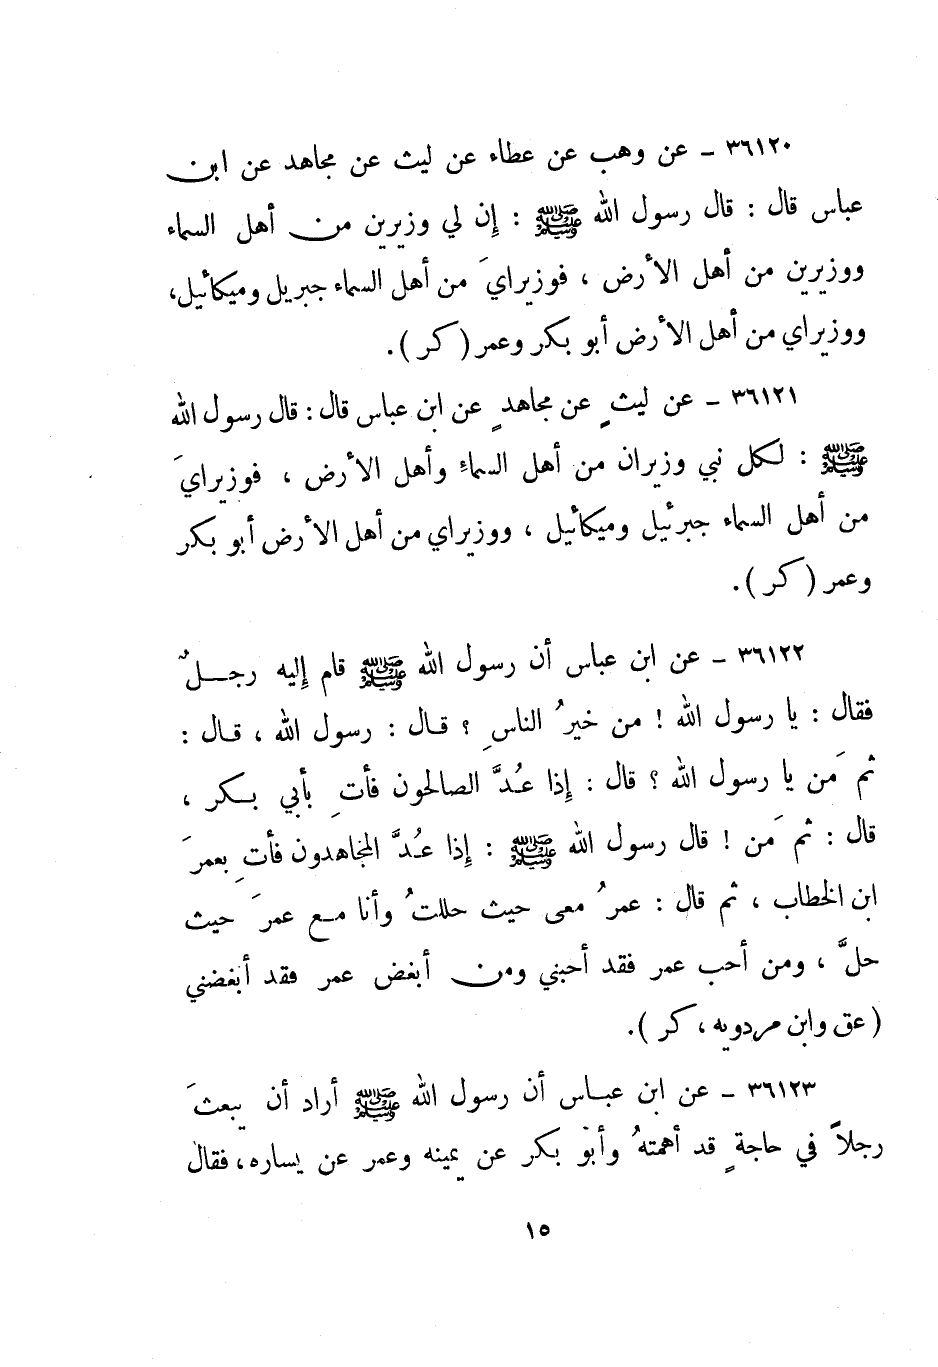 ٣٦١٢٠ ـ عن وهب عن عطاء عن ليث عن مجاهد عن ابن
عباس قال : قال رسول الله ﷺ : إن لي وزيرين من أهل السماء
ووزيرين من أهل الأرض ، فوزيرايَ من أهل السماء جبريل وميكائيل،
ووزيراي من أهل الأرض أبو بكر وعمر (كر).
٣٦١٢١ ـ عن ليثٍ عن مجاهدٍ عن ابن عباس قال : قال رسول الله
ﷺ : لكل نبي وزيران من أهل السماءِ وأهل الأرض ، فوزيرايَ
من أهل السماء جبرئيل وميكائيل ، ووزيراي من أهل الأرض أبو بكر
وعمر (كر).
٣٦١٢٢ ـ عن ابن عباس أن رسول الله ﷺ قام إليه رجلٌ
فقال : يا رسول الله ! من خيرُ الناسِ ؟ قال : رسول الله ، قال :
ثم مَن يا رسول الله ؟ قال : إذا عُدَّ الصالحون فأتِ بأبي بكر ،
قال : ثم مَن ! قال رسول الله ﷺ : إذا عُدَّ المجاهدون فأتِ بعمرَ
ابن الخطاب ، ثم قال : عمرُ معى حيث حللتُ وأنا مع عمرَ حيث
حلَّ ، ومن أحب عمر فقد أحبني ومن أبغض عمر فقد أبغضني
(عق وابن مردويه ، كر).
٣٦١٢٣ ـ عن ابن عباس أن رسول الله ﷺ أراد أن يبعثَ
رجلاً في حاجةٍ قد أهمتهُ وأبو بكر عن يمينه وعمر عن يساره، فقال
١٥